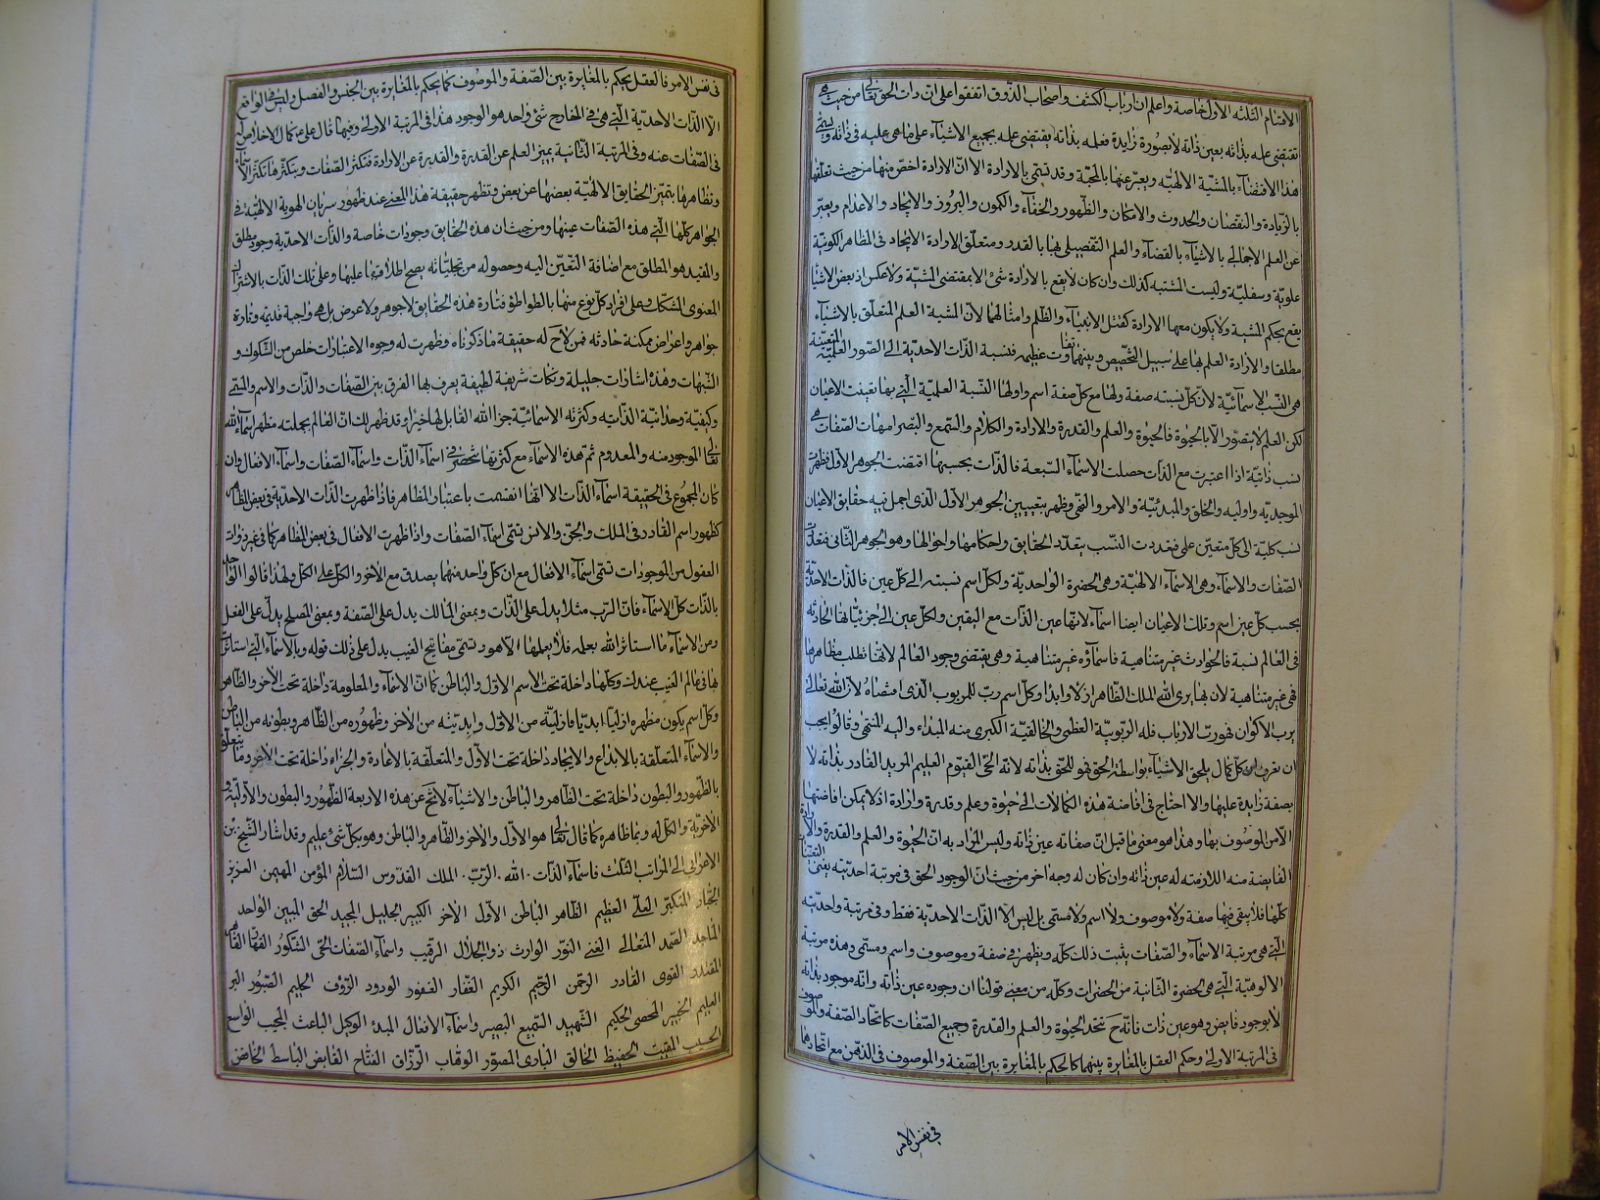 الاقسام الثلثه الاول خاصة واعلم ان ارباب الكشف واصحاب الذوق اتفقوا على ان ذات الحق تعالى من حيث هي
تقتضى علمه بذاته بعين ذاته لا بصورة زايدة فعلمه بذاته يقتضى علمه بجميع الاشياء على ما هى عليه فى ذاته ويسمى
هذا الاقتضاء بالمشية الالهية ويعبر عنها بالمحبة وقد تسمى بالارادة الا ان الارادة اخص منها من حيث تعلقها
بالزيادة والنقصان والحدوث والامكان والظهور والخفاء والكمون والبروز والايجاد والاعدام ويعبر
عن العلم الاجمالى بالاشياء بالقضاء والعلم التفصيلى بها بالقدر ومتعلق الارادة الايجاد فى المظاهر الكونية
علوية وسفلية وليست المشيه كذلك وان كان لا يقع بالارادة شىء الا بمقتضى المشية ولا عكس اذ بعض الاشياء
يقع بحكم المشية ولا يكون معها الارادة كقتل الانبياء والظلم وامثالهما لان المشية العلم المتعلق بالاشياء
مطلقا والارادة العلم بها على سبيل التخصيص وبينهما تفاوت عظيم فنسبة الذات الاحدية الى الصور العلمية المتعينة
هى النسب الاسمائية لان كل نسبته صفة ولها مع كل صفة اسم واولها النسبة العلمية التى بها تعينت الاعيان
لكن العلم لا يتصور الا بالحيوة فالحيوة والعلم والقدرة والارادة والكلام والسمع والبصر امهات الصفات هى
نسب ذاتية اذا اعتبرت مع الذات حصلت الاسماء السبعة فالذات بحسبها اقتضت الجوهر الاول فظهرت
الموجدية واوليه والخلق والمبدئية والامر والنهى وظهر بتعيين الجوهر الاول الذى اجمل فيه حقايق الاعيان
نسب كلية الى كل متعين على فتعددت النسب بتعدد الحقايق واحكامها واحوالها وهو الجوهر الثانى فتعددت
الصفات والاسماء وهى الاسماء الالهية وهى الحضرة الواحدية ولكل اسم نسبته الى كل عين فالذات الاحدية
بحسب كل عين اسم وتلك الاعيان ايضا اسماء لانها عين الذات مع اليقين ولكل عين الى جزئياتها الحادثه
فى العالم نسبة فالحوادث غير متناهية فاسماؤه غير متناهية وهى يقتضى وجود العالم لانها تطلب مظاهرها
فهى غير متناهية لان بها يرى الله الملك الظاهر ازلا وابدا وكل اسم رب للمربوب الذى امتضاه لان الله تعالى
يرب الاكوان فهو رب الارباب فله الربوبية العظمى والخالقية الكبرى منه المبداء واليه المنتهى وقالوا يجب
ان تعرف ان كل كمال يلحق الاشياء بواسطة الحق فهو للحق بذاته لانه الحى القيوم العليم المريد القادر بذاته لا
بصفة زايدة عليها والا احتاج فى افاضة هذه الكمالات الى حيوة وعلم وقدرة وارادة اذ لا يمكن افاضتها
الا من الموصوف بها وهذا هو معنى ما قيل ان صفاته عين ذاته وليس المراد به ان الحيوة والعلم والقدرة والارادة
الفايضة منه اللازمة له عين ذاته وان كان له وجه اخر من حيث ان الوجود الحق فى مرتبة احديته يفنى التعينات
كلها فلا يبقى فيها صفة ولا موصوف ولا اسم ولا مسمى بل ليس الا الذات الاحدية فقط وفى مرتبة واحديته
التى هى مرتبة الاسماء والصفات يثبت ذلك كله ويظهر فى صفة وموصوف واسم ومسمى وهذه مرتبة
الالوهية التى هى الحضرة الثانية من الحضرات وكله من معنى قولنا ان وجوده عين ذاته وانه موجود بذاته
لا بوجود فايض وهو عين ذاته فانه ح تتحد الحيوة والعلم والقدرة وجميع الصفات كاتحاد الصفة والموصوف
فى المرتبة الاولى وحكم العقل بالمغايرة بينهما كالحكم بالمغايرة بين الصفة والموصوف فى الذهن مع اتحادها
فى نفس الامر
فى نفس الامر فالعقل يحكم بالمغايرة بين الصفة والموصوف كما يحكم بالمغايرة بين الجنس والفصل وليس فى الواقع
الا الذات الاحدية التى هى فى الخارج شىء واحد هو الوجود هذا فى المرتبة الاولى وفيها قال على ع كمال الاخلاص له
نفى الصفات عنه وفى المرتبة الثانية يميز العلم عن القدرة والقدرة عن الارادة فتكثر الصفات وبتكثرها تكثر الاسماء
ومظاهرها بتميز الحقايق الالهية بعضها عن بعض وتظهر حقيقة هذا المعنى عند ظهور سريان الهوية الالهية فى
الجواهر كلها التى هذه الصفات عينها ومن حيث ان هذه الحقايق وجودات خاصة والذات الاحدية وجود مطلق
والمقيد هو المطلق مع اضافة التعين اليه وحصوله من تجلياته يصح اطلاقها عليها وعلى تلك الذات بالاشتراك
المعنوى المشكك وعلى افراد كل نوع منها بالطواطؤ فتارة هذه الحقايق لا جوهر ولا عرض بل هى واجبة قديمة وتارة
جواهر واعراض ممكنة حادثه فمن لاح له حقيقة ما ذكرناه وظهرت له وجوه الاعتبارات خلص من الشكوك و
الشبهات وهذه اشارات جليلة ونكات شريفية لطيفة يعرف بها الفرق بين الصفات والذات والاسم والمسمى
وكيفية وحدانية الذاتية وكثرته الاسمائية جزا الله القايل بها خيرا وقد ظهر لك ان العالم بجملته مظهر اسماء الله
تعالى الموجود منه والمعدوم ثم هذه الاسماء مع كثرتها تنحصر فى اسماء الذات واسماء الصفات واسماء الافعال وان
كان المجموع فى الحقيقة اسماء الذات الا انها انقسمت باعتبار المظاهر فاذا ظهرت الذات الاحدية فى بعض المظاهر
كظهور اسم القادر فى الملك والجن والانس تسمى اسماء الصفات واذا ظهرت الافعال فى بعض المظاهر كما فى غير ذوات
العقول من الموجودات تسمى اسماء الافعال مع ان كل واحد منهما يصدق مع الاخر والكل على الكل ولهذا قالوا الواحد
بالذات كل الاسماء فان الرب مثلا يدل على الذات وبمعنى المالك يدل على الصفة وبمعنى المصلح يدل على الفعل
ومن الاسماء ما استاثر الله بعلمه فلا يعلمها الا هو وتسمى مفاتيح الغيب يدل على ذلك قوله وبالاسماء التى استاثرت
بها فى عالم الغيب عندك وكلها داخلة تحت الاسم الاول والباطن كما ان الاسماء والمعلومة داخلة تحت الاخر والظاهر
وكل اسم يكون مظهره ازليا ابديا فازليته من الاول وابديته من الاخر وظهوره من الظاهر وبطونه من الباطن
والاسماء المتعلقة بالابداع والايجاد داخلة تحت الاول والمتعلقة بالاعادة والجزاء داخلة تحت الاخر وما يتعلق
بالظهور والبطون داخلة تحت الظاهر والباطن والاشياء لا تخ عن هذه الاربعة الظهور والبطون والاولية و
الاخرية والكل له وبما ظاهره كما قال تعالى هو الاول والاخر والظاهر والباطن وهو بكل شىء عليم وقد اشار الشيخ بن
الاعرابى الى المراتب الثلث فاسماء الذات . الله . الرب . الملك القدوس السلام المؤمن المهيمن العزيز
الجبار المتكبر العلى العظيم الظاهر الباطن الاول الاخر الكبير الجليل المجيد الحق المبين الواحد
الماجد الصمد المتعالى الغنى النور الوارث ذو الجلال الرقيب واسماء الصفات الحى الشكور القهار القاهر
المقتدر القوى القادر الرحمن الرحيم الكريم الغفار الغفور الودود الرؤف الحليم الصبور البر
العليم الخبير المحصى الحكيم الشهيد السميع البصير واسماء الافعال المبدء الوكيل الباعث المجيب الواسع
الحسيب المقيت الحفيظ الخالق البارى المصور الوهاب الرزاق الفتاح القابض الباسط الخافض